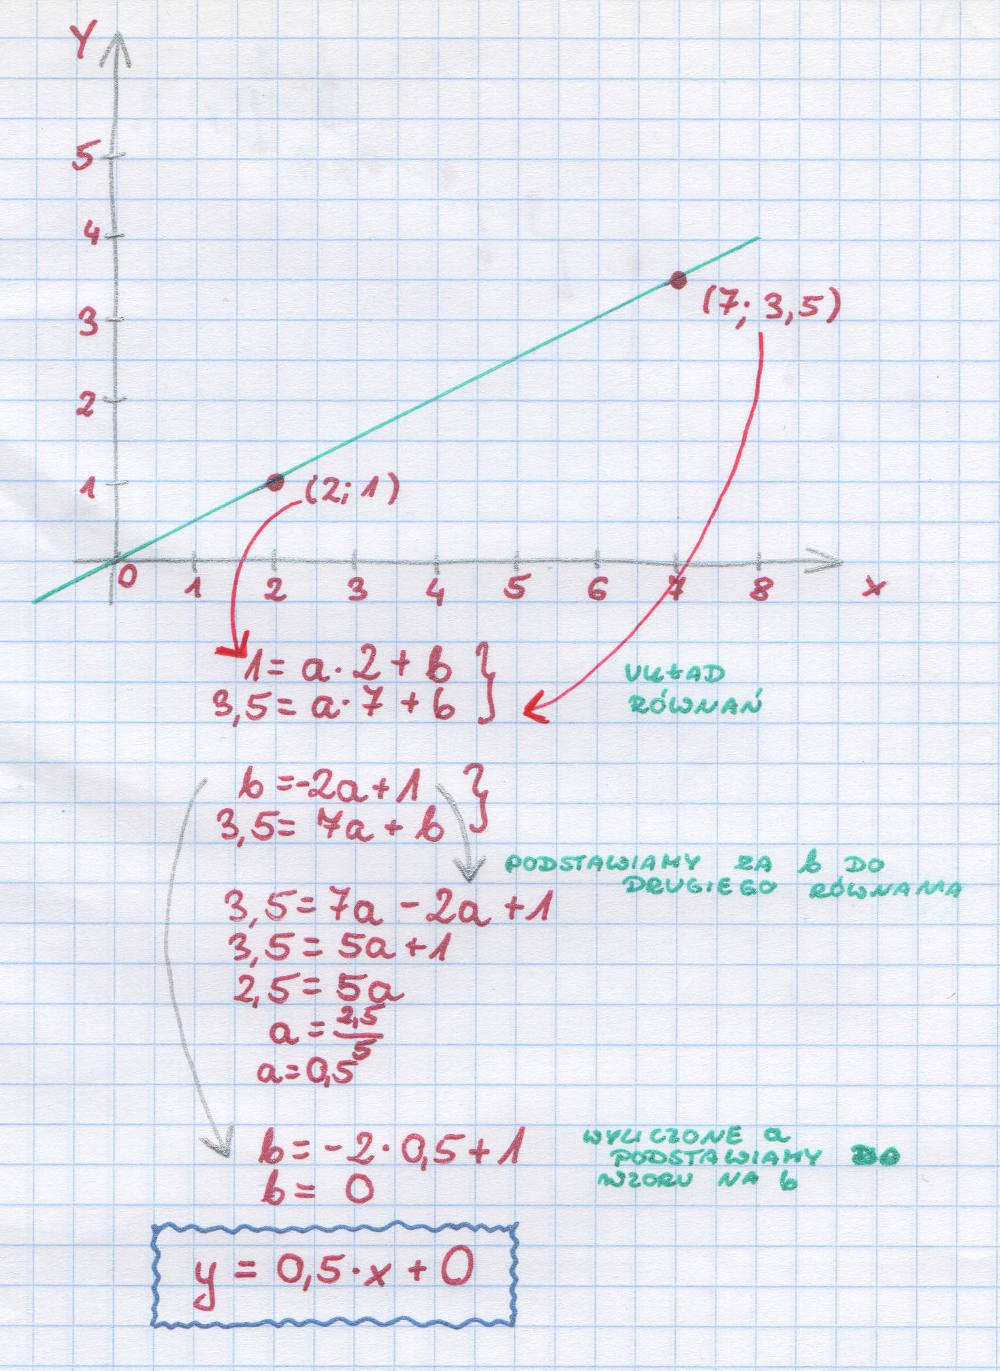 Y
5
4
3
2
1
(7; 3,5)
(2; 1)
0 1 2 3 4 5 6 7 8 x
1 = a · 2 + b }
3,5 = a · 7 + b
UKŁAD
RÓWNAŃ
b = -2a + 1 }
3,5 = 7a + b
PODSTAWIAMY ZA b DO
DRUGIEGO RÓWNANIA
3,5 = 7a - 2a + 1
3,5 = 5a + 1
2,5 = 5a
a = 2,5/5
a = 0,5
b = -2 · 0,5 + 1
b = 0
WYLICZONE a
PODSTAWIAMY DO
WZORU NA b
y = 0,5 · x + 0